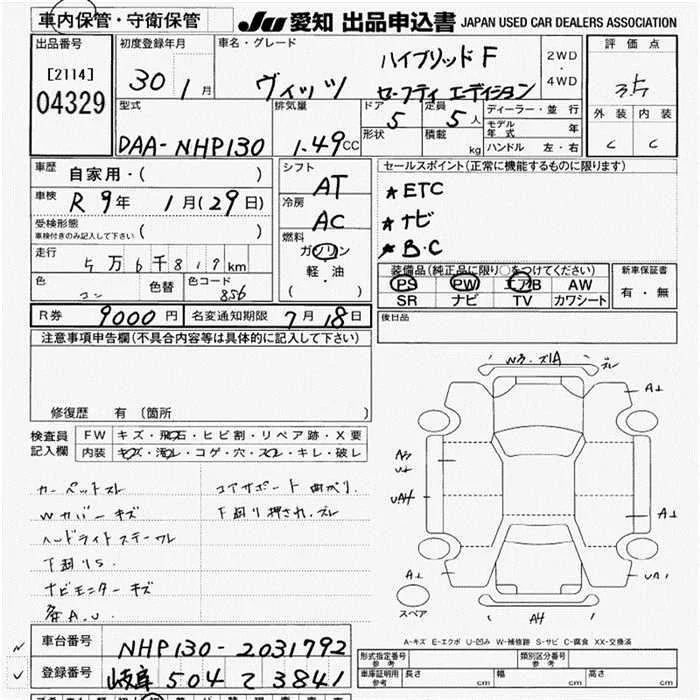 車内保管・守衛保管
JU 愛知 出品申込書 JAPAN USED CAR DEALERS ASSOCIATION
出品番号
[2114]
04329
初度登録年月
30 年 1 月
車名・グレード
ヴィッツ
ハイブリッド F
セーフティ エディション
2WD
・
4WD
評価点
3.5
外装 内装
C C
型式
DAA-NHP130
排気量
1.49 CC
ドア
5
定員
5 人
形状
積載
kg
ディーラー・並行
モデル年式 年
ハンドル 左・右
車歴
自家用・( )
車検
R 9年 1月(29日)
受検形態
車検付きのみ記入して下さい
( )
走行
5万6千819km
色
色替
色コード
856
シフト
AT
冷房
AC
燃料
ガソリン
軽油
・
( )
セールスポイント(正常に機能するものに限ります)
★ETC
★ナビ
★B・C
装備品(純正品に限り○をつけてください)
PS PW エアB AW
SR ナビ TV カワシート
新車保証書
有・無
R券 9000円 名変通知期限 7月18日
後日品
注意事項申告欄(不具合内容等は具体的に記入して下さい)
修復歴 有 (箇所 )
検査員
記入欄
FW キズ・飛石・ヒビ割・リペア跡・X要
内装 キズ・汚レ・コゲ・穴・スレ・キレ・破レ
カーペットスレ
Wカバーキズ
ヘッドライトステーワレ
下廻りS.
ナビモニターキズ
コアサポート曲がり.
下廻り押され.ズレ
W3.ズレA
ズレ
A1
A3
U1
UA4
A1
A1
UA1
A4
スペア
A-キズ E-エクボ U-凹み W-補修跡 S-サビ C-腐食 XX-交換済
車台番号 NHP130-2031792
登録番号 岐阜 504 て 3841
形式指定番号
参考
類別区分番号
参考
車庫証明用
参考
長さ cm 幅 cm 高さ cm